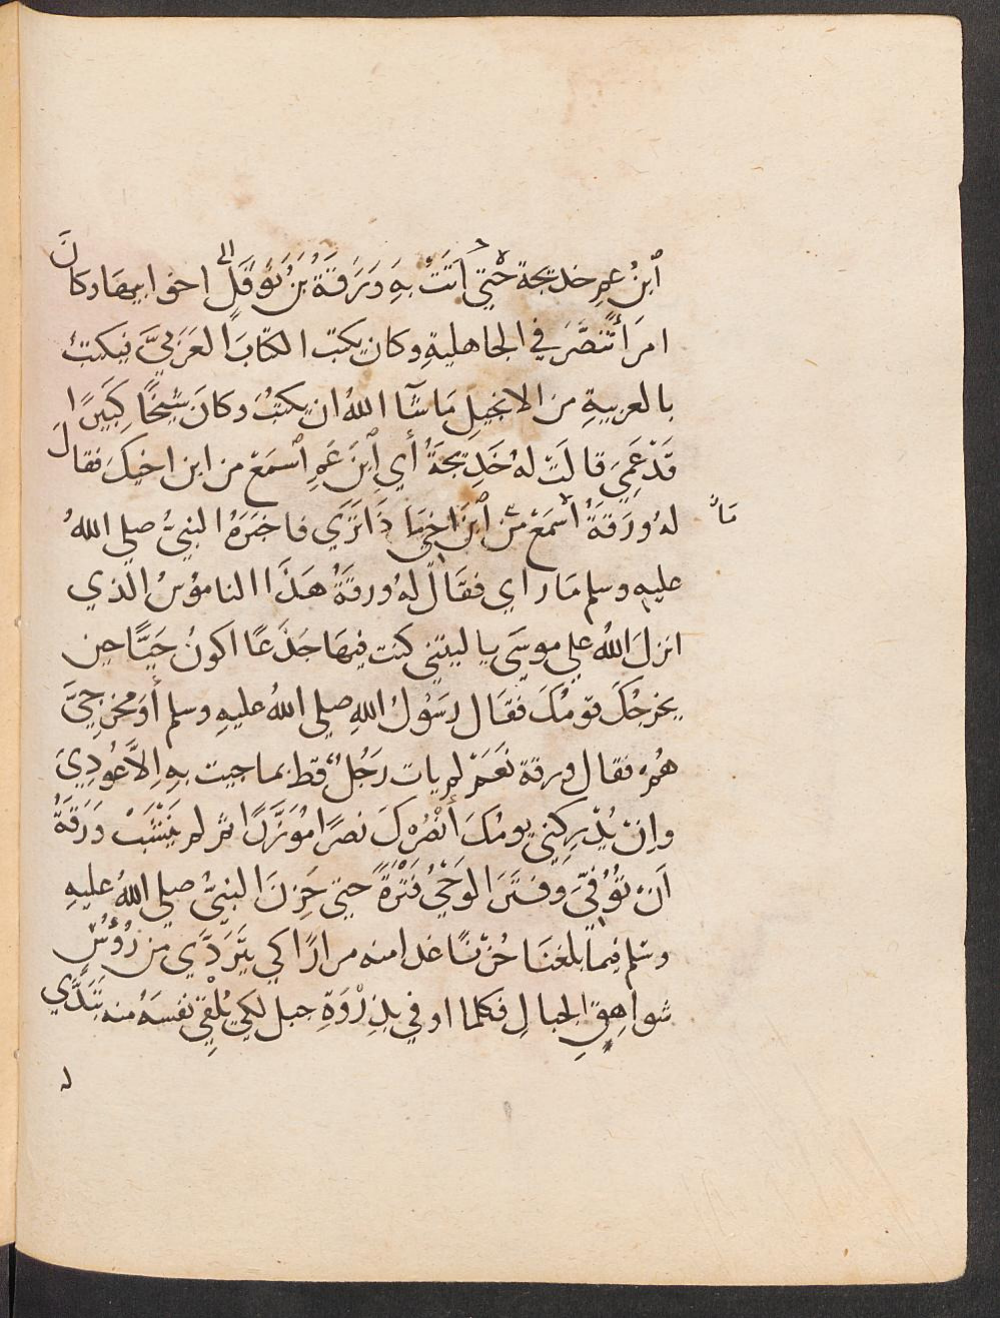 ٱبنُ عمِ خديجة حتي أتَتْ بِهِ وَرَقَةَ بْنُ نَوْفَلَ الي اخوا بيها وكانَ
امرَأً تَنَصَّرَ في الجاهليةِ وكان يكتب الكتابَ العَرَبيَّ فيكتبُ
بالعربيةِ من الانجيلِ مَا شآا اللهُ ان يكتبَ وكانَ شيخًا كَبِيَرًا
قَدْ عَمِيَ قالَتْ لهُ خَدِيجَةُ أي ٱبنَ عَمِ ٱسمَعْ من ابن اخيكَ فقالَ
لهُ ورَقَةَُ ٱسمَعْ مِّن ٱبنَ اخي مَا ذَا تَرَي فاخبَرَهُ النبيُّ صلي اللهُ
عليهِ وسلم مَا راي فقَالَ لهُ ورقَةُ هَذَا الناموُسُ الذي
انزلَ اللهُ علي موسَي يا ليتني كنت فيهَا جَذَعًا اكونُ حَيًّا حين
يخرجُكَ قومُكَ فقَال رسَوُلُ اللهِ صلي اللهُ عليهِ وسلم أوَمخرجِيَّ
هُمْ فقال ورقة نَعَمْ لم يات رَجُلٌ قط بما جيت بِهِ اِلاَّ عُودِيَ
واِنْ يُدْرِكني يومُكَ أَنْصُرْكَ نصرًا مُؤَزَّرًا ثم لم يَنْشَبْ وَرَقَةُ
اَنْ تُوُفِّيَ وفتَرَ الوَحْيُ فَتْرَةً حتي حَزِنَ النبيُّ صلي اللهُ عليهِ
وسَلم فيما بلغنَا حُزنًا غدا منه مرارًا كي يَتَرَدَّي من رُؤُسِ
شواهِقِ الجبالِ فكلما اوفي بِذِرْوَةِ جبل لكي يُلْقِيَ نفسَهُ منه تَبَدَّي